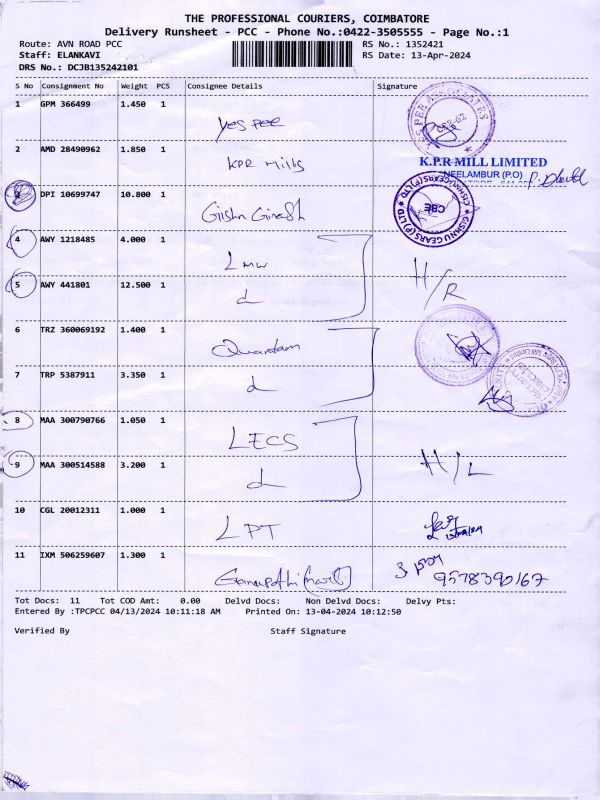 THE PROFESSIONAL COURIERS, COIMBATORE
Delivery Runsheet - PCC - Phone No.:0422-3505555 - Page No.:1
Route: AVN ROAD PCC RS No.: 1352421
Staff: ELANKAVI RS Date: 13-Apr-2024
DRS No.: DCJB135242101
S No Consignment No Weight PCS Consignee Details Signature
1 GPM 366499 1.450 1
Yes Pee
2 AMD 28490962 1.850 1
KPR Mills
K.P.R MILL LIMITED
NEELAMBUR (P.O)
3 DPI 10699747 10.800 1
GISHNU GEARS (P) LTD
CBE
4 AWY 1218485 4.000 1
LMW
H/R
5 AWY 441801 12.500 1
6 TRZ 360069192 1.400 1
7 TRP 5387911 3.350 1
8 MAA 300790766 1.050 1
LECS
H/L
9 MAA 300514588 3.200 1
10 CGL 20012311 1.000 1
LPT
11 IXM 506259607 1.300 1
9578390167
Tot Docs: 11 Tot COD Amt: 0.00 Delvd Docs: Non Delvd Docs: Delvy Pts:
Entered By :TPCPCC 04/13/2024 10:11:18 AM Printed On: 13-04-2024 10:12:50
Verified By Staff Signature